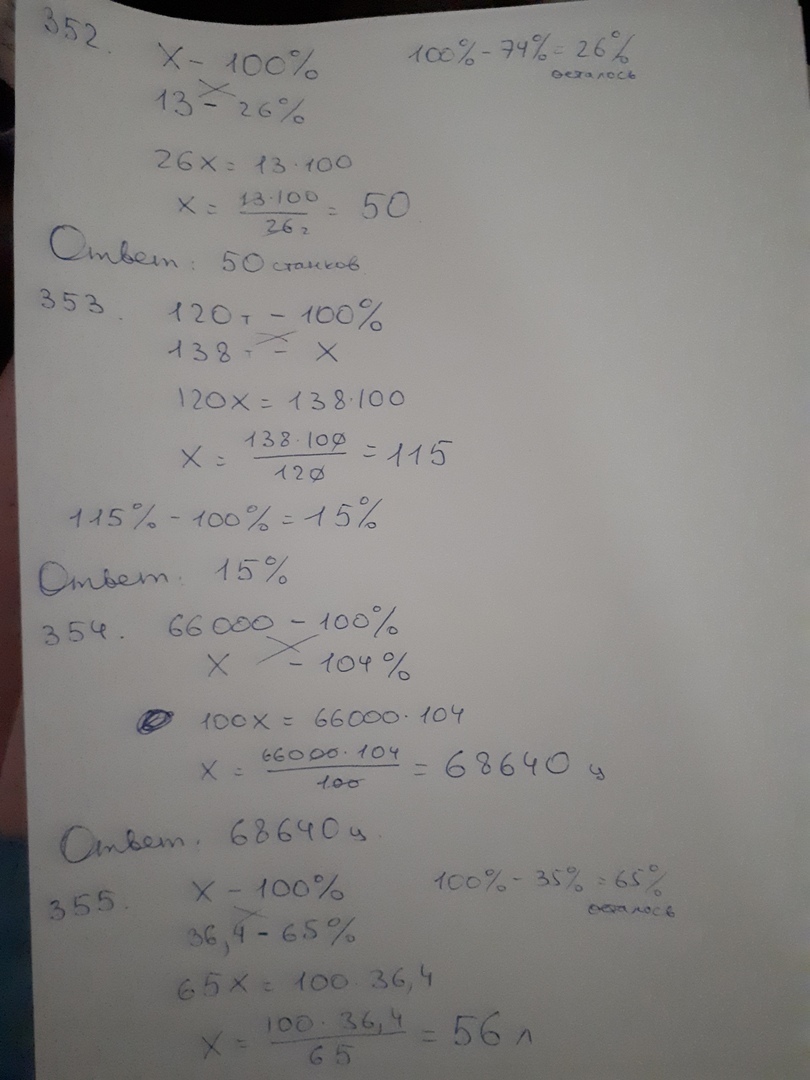 352.
х - 100% 100% - 74% = 26%
осталось
13 - 26%
26х = 13·100
х = 13·100/26 2 = 50
Ответ: 50 станков
353. 120т - 100%
138т - х
120х = 138·100
х = 138·100/120 = 115
115% - 100% = 15%
Ответ. 15%
354. 66000 - 100%
х - 104%
100х = 66000·104
х = 66000·104/100 = 68640 ц
Ответ. 68640 ц
355. х - 100% 100% - 35% = 65%
осталось
36,4 - 65%
65х = 100·36,4
х = 100·36,4/65 = 56 л